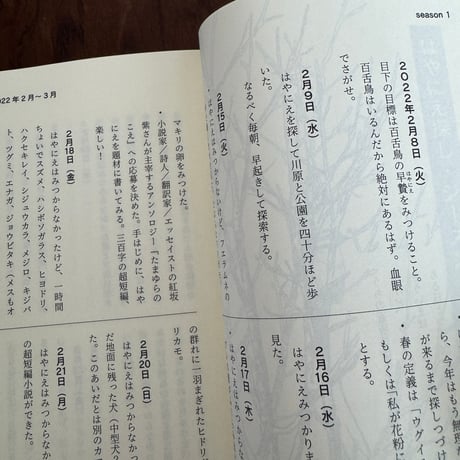 season 1
2022年2月8日（火）
目下の目標は百舌鳥の早贄をみつけること。
はやにえ
百舌鳥はいるんだから絶対にあるはず。血眼
でさがせ。
2月9日（水）
はやにえを探して川原と公園を四十分ほど歩
いた。
なるべく毎朝、早起きして探索する。
2月15日（火）
はやにえはみつからないけど、フェラムネの
今年はもう無
が来るまで探しつづけ
春の定義は「ウグイ
もしくは「私が花粉
とする。
2月16日（水）
はやにえみつかりま
見た。
2月17日（木）
はやにえはみつから
022年2月〜3月
マキリの卵をみつけた。
・小説家/詩人/翻訳家/エッセイストの紅坂
紫さんが主宰するアンソロジー『たまゆらの
こえ』への応募を決めた。手はじめに、はや
にえを題材に書いてみる。三百字の超短編、
楽しい！
2月18日（金）
はやにえはみつからなかったけど、一時間
ちょいでスズメ、ハシボソガラス、ヒヨドリ、
ハクセキレイ、シジュウカラ、メジロ、キジバ
ト、ツグミ、エナガ、ジョウビタキ（メスもオ
の群れに一羽まぎれたヒドリ
リカモ。
2月20日（日）
はやにえはみつからなかっ
だ地面に残った犬（中型犬？
た。このあいだとは別のカ
2月21日（月）
はやにえはみつからなか
の超短編小説ができた。